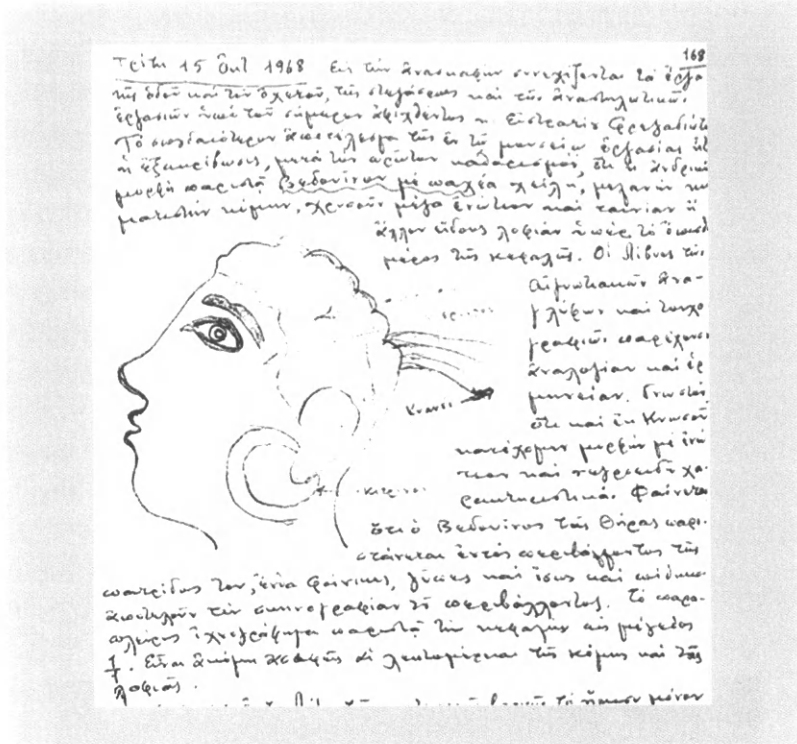 168
Τρίτη 15 Ὀκτ 1968 Εἰς τὴν ἀνασκαφὴν συνεχίζονται τὰ ἔργα
τῆς ὁδοῦ καὶ τοῦ ὀχετοῦ, τῆς στεγάσεως καὶ τῆς ἀναστηλωτικῆς
ἐργασίας ὑπὸ τοῦ σήμερον ἀφιχθέντος κ. Εὐστρατίου
Τὸ σπουδαιότερον ἀποτέλεσμα τῆς ἐν τῷ μουσείῳ ἐργασίας
ἡ ἐξακρίβωσις, μετὰ τὸν πρῶτον καθαρισμόν, ὅτι ἡ ἀνδρικὴ
μορφὴ παριστᾷ Βεδουίνον μὲ παχέα χείλη, μεγάλην κυ
ματιστὴν κόμην, χρυσοῦν μέγα ἐνώτιον καὶ ταινίαν ἢ
ἄλλου εἴδους λοφιὰν ὑπὲρ τὸ ὄπισθ
μέρος τῆς κεφαλῆς. Οἱ Λίβυες τῶν
Αἰγυπτιακῶν ἀνα-
γλύφων καὶ τοιχο
γραφιῶν παρέχουσι
ἀναλογίαν καὶ ἑρ
μηνείαν. Γνωστὸν
ὅτι καὶ ἐν Κνωσοῦ
κατέχομεν μορφὴν μὲ ἐνώ
τιον καὶ νεγροειδῆ χα-
ρακτηριστικά. Φαίνεται
ὅτι ὁ Βεδουίνος τῆς Θήρας παρι-
στάνεται ἐντὸς περιβάλλοντος τῆς
πατρίδος του, ἔνθα φοίνικες, γῦπες καὶ ἴσως καὶ πίθηκοι
ἀποτελοῦν τὴν σκηνογραφίαν τοῦ περιβάλλοντος. Τὸ παρα-
πλεύρως ἰχνογράφημα παριστᾷ τὴν κεφαλὴν εἰς μέγεθος
1/1. Εἶναι ἀκόμη ἀσαφεῖς αἱ λεπτομέρειαι τῆς κόμης καὶ τῆς
λοφιᾶς.
Κυανοῦ
κίτρινον